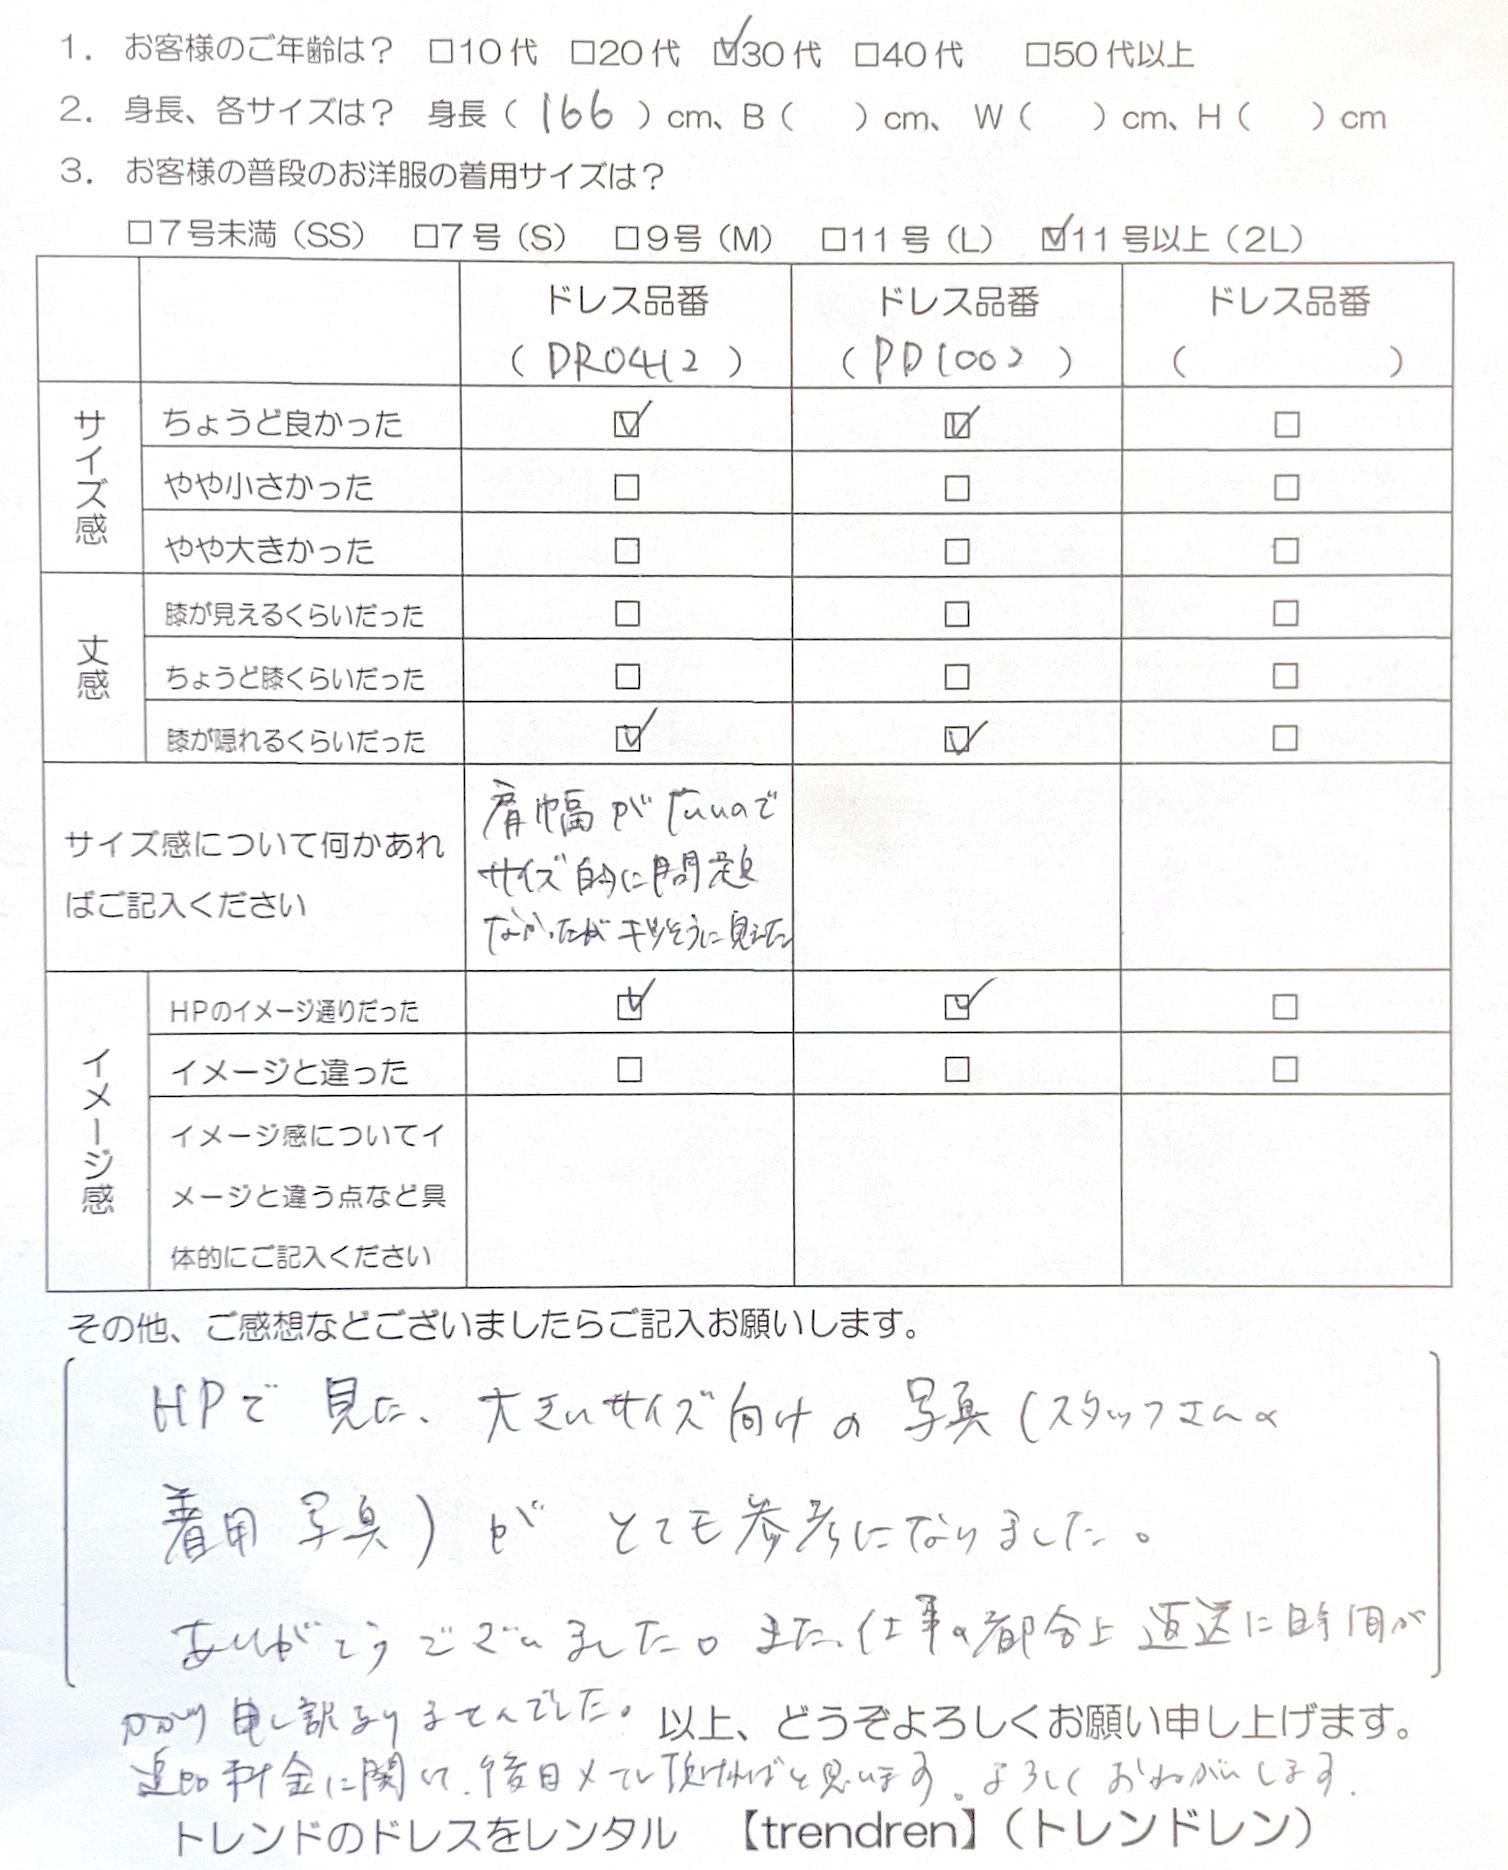 1. お客様のご年齢は？ □10代 □20代 ☑30代 □40代 □50代以上
2. 身長、各サイズは？ 身長（166）cm、B（ ）cm、W（ ）cm、H（ ）cm
3. お客様の普段のお洋服の着用サイズは？
□7号未満（SS） □7号（S） □9号（M） □11号（L） ☑11号以上（2L）
ドレス品番 ドレス品番 ドレス品番
（DR0412） （PD1002） （ ）
サイズ感
ちょうど良かった ☑ ☑ □
やや小さかった □ □ □
やや大きかった □ □ □
丈感
膝が見えるくらいだった □ □ □
ちょうど膝くらいだった □ □ □
膝が隠れるくらいだった ☑ ☑ □
サイズ感について何かあれ
ばご記入ください
肩幅がないので
サイズ的に問題
なかったがキツそうに見えた
イメージ感
HPのイメージ通りだった ☑ ☑ □
イメージと違った □ □ □
イメージ感についてイ
メージと違う点など具
体的にご記入ください
その他、ご感想などございましたらご記入お願いします。
HPで見た、大きいサイズ向けの写真（スタッフさんの
着用写真）がとても参考になりました。
ありがとうございました。また、仕事の都合上返送に時間が
かかり申し訳ありませんでした。
以上、どうぞよろしくお願い申し上げます。
追加料金に関して、後日メール頂ければと思います。よろしくおねがいします。
トレンドのドレスをレンタル 【trendren】（トレンドレン）